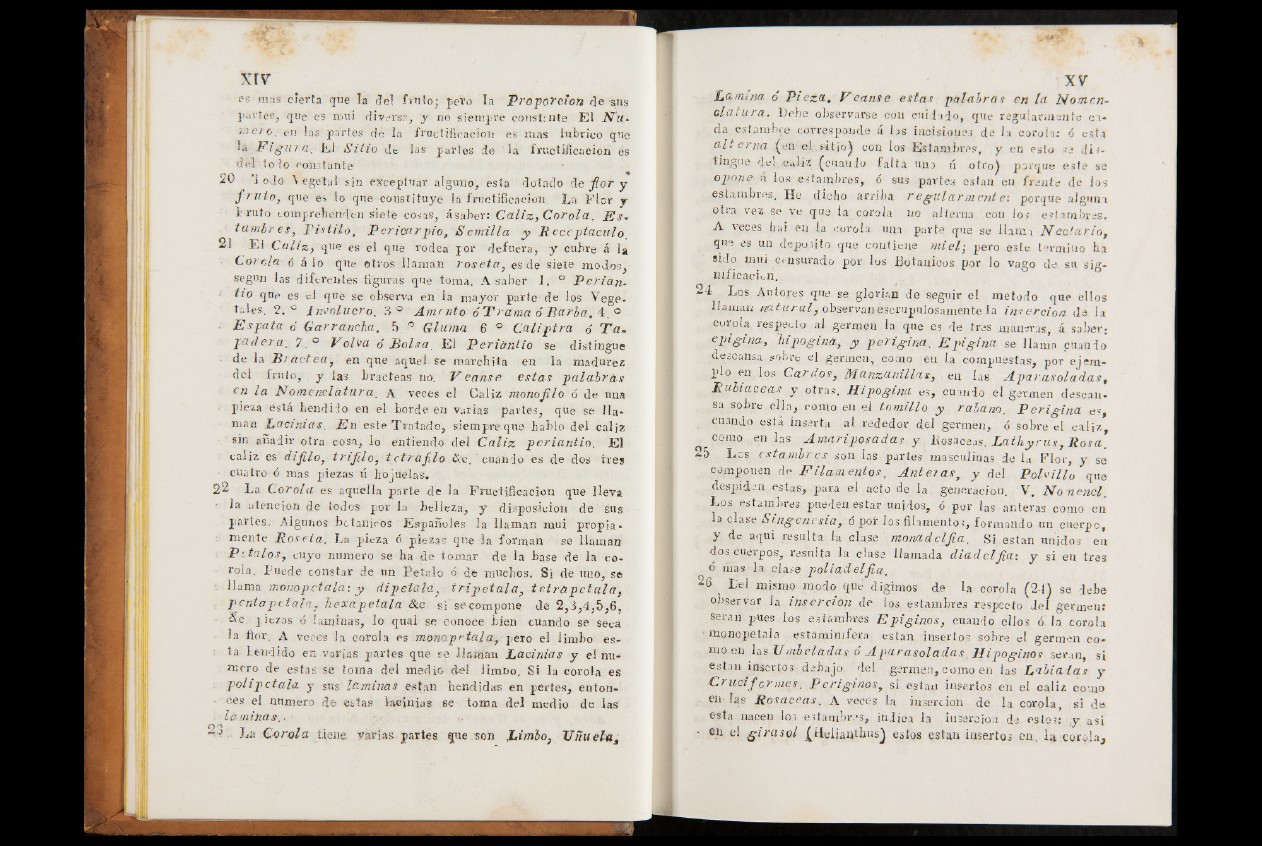 XIV
es mas cierta que la del fruto; pero la Proporcion de sus
partes, que es mui diversa, y no siempre constante El Nu-
mero. en las partes de la fructificacion es mas lubrico que
la Figura. El Sitio de las partes de la fructificacion es
del todo constante
20 Todo Vegetal sin exceptuar alguno, esta dotado de flor y
fruto, que es lo que constituye la fructificacion La Flor y
Fruto comprehenden siete cosas, ásaber: Caliz, Corola. Es-
tambres, Pistilo, Pericarpio, Semilla y Receptaculo.
21 El Caliz, que es el que rodea por defuera, y cubre á la
Corola ó á lo que otros llaman roseta, es de siete modos,
segun las diferentes figuras que toma. A saber 1. º Perian-
tio que es el que se observa en la mayor parte de los Vege-
tales. 2. º Involucro. 3 º Amento ó Trama ó Barba. 4. º
Espata ó Garrancha. 5 º Gluma 6 º Caliptra ó Ta-
padera. 7. º Volva ó Bolsa. El Periantio se distingue
de la Bractea, en que aquel se marchita en la madurez
del fruto, y las bracteas no. Veanse estas palabras
en la Nomenclatura. A veces el Caliz monofilo ó de una
pieza está hendido en el borde en varias partes, que se lla-
man Lacinias. En este Tratado, siempre que hablo del caliz
sin añadir otra cosa, lo entiendo del Caliz periantio. El
caliz es difilo, trifilo, tetrafilo &c. cuando es de dos tres
cuatro ó mas piezas ú hojuelas.
22 La Corola es aquella parte de la Fructificacion que lleva
la atencion de todos por la belleza, y disposicion de sus
partes. Algunos botanicos Españoles la llaman mui propia-
mente Roseta. La pieza ó piezas que la forman se llaman
Petalos, cuyo numero se ha de tomar de la base de la co-
rola. Puede constar de un Petalo ó de muchos. Si de uno, se
llama monopetala: y dipetala, tripetala, tetrapetala,
pentapetala, hexapetala &c si se compone de 2,3,4,5,6,
&c piezas ó laminas, lo qual se conoce bien cuando se seca
la flor. A veces la corola es monopetala, pero el limbo es-
ta hendido en varias partes que se llaman Lacinias y el nu-
mero de estas se toma del medio del limbo. Si la corola es
polipetala y sus laminas estan hendidas en partes, enton-
ces el numero de estas lacinias se toma del medio de las
laminas.
23 La Corola tiene varias partes que son Limbo, Uñuela,
XV
Lamina ó Pieza. Veanse estas palabras en la Nomen-
clatura. Debe observarse con cuidado, que regularmente ca-
da estambre corresponde á las incisiones de la corola: ó esta
alterna (en el sitio) con los Estambres, y en esto se dis-
tingue del caliz (cuando falta uno ú otro) porque este se
opone á los estambres, ó sus partes estan en frente de los
estambres. He dicho arriba regularmente: porque alguna
otra vez se ve que la corola no alterna con los estambres.
A veces hai en la corola una parte que se llama Nectario,
que es un deposito que contiene miel; pero este termino ha
sido mui censurado por los Botanicos por lo vago de su sig-
nificacion.
24 Los Autores que se glorian de seguir el metodo que ellos
llaman natural, observan escrupulosamente la insercion de la
corola respecto al germen la que es de tres maneras, á saber:
epigina, hipogina, y perigina. Epigina se llama cuando
descansa sobre el germen, como en la compuestas, por ejem-
plo en los Cardos, Manzanillas, en las Aparasoladas,
Rubiaceas y otras. Hipogina es, cuando el germen descan-
sa sobre ella, como en el tomillo y rabano. Perigina es,
cuando está inserta al rededor del germen, ó sobre el caliz,
como en las Amariposadas y Rosaceas. Lathyrus, Rosa.
25 Los estambres son las partes masculinas de la Flor, y se
componen de Filamentos, Anteras, y del Polvillo que
despiden estas, para el acto de la generacion. V. Nomencl.
Los estambres pueden estar unidos, ó por las anteras como en
la clase Singenesia, ó por los filamentos, formando un cuerpo,
y de aqui resulta la clase monadelfia. Si estan unidos en
dos cuerpos, resulta la clase llamada diadelfia: y si en tres
ó mas la clase poliadelfia.
26 Del mismo modo que digimos de la corola (24) se debe
observar la insercion de los estambres respecto del germen:
seran pues los estambres Epiginos, cuando ellos ó la corola
monopetala estaminifera estan insertos sobre el germen co-
mo en las Umbeladas ó Aparasoladas. Hipoginos seran, si
estan insertos debajo del germen, como en las Labiadas y
Cruciformes. Periginos, si estan insertos en el caliz como
en las Rosaceas. A veces la insercion de la corola, si de
esta nacen los estambres, indica la insercion de estos: y asi
en el girasol (Helianthus) estos estan insertos en la corola,